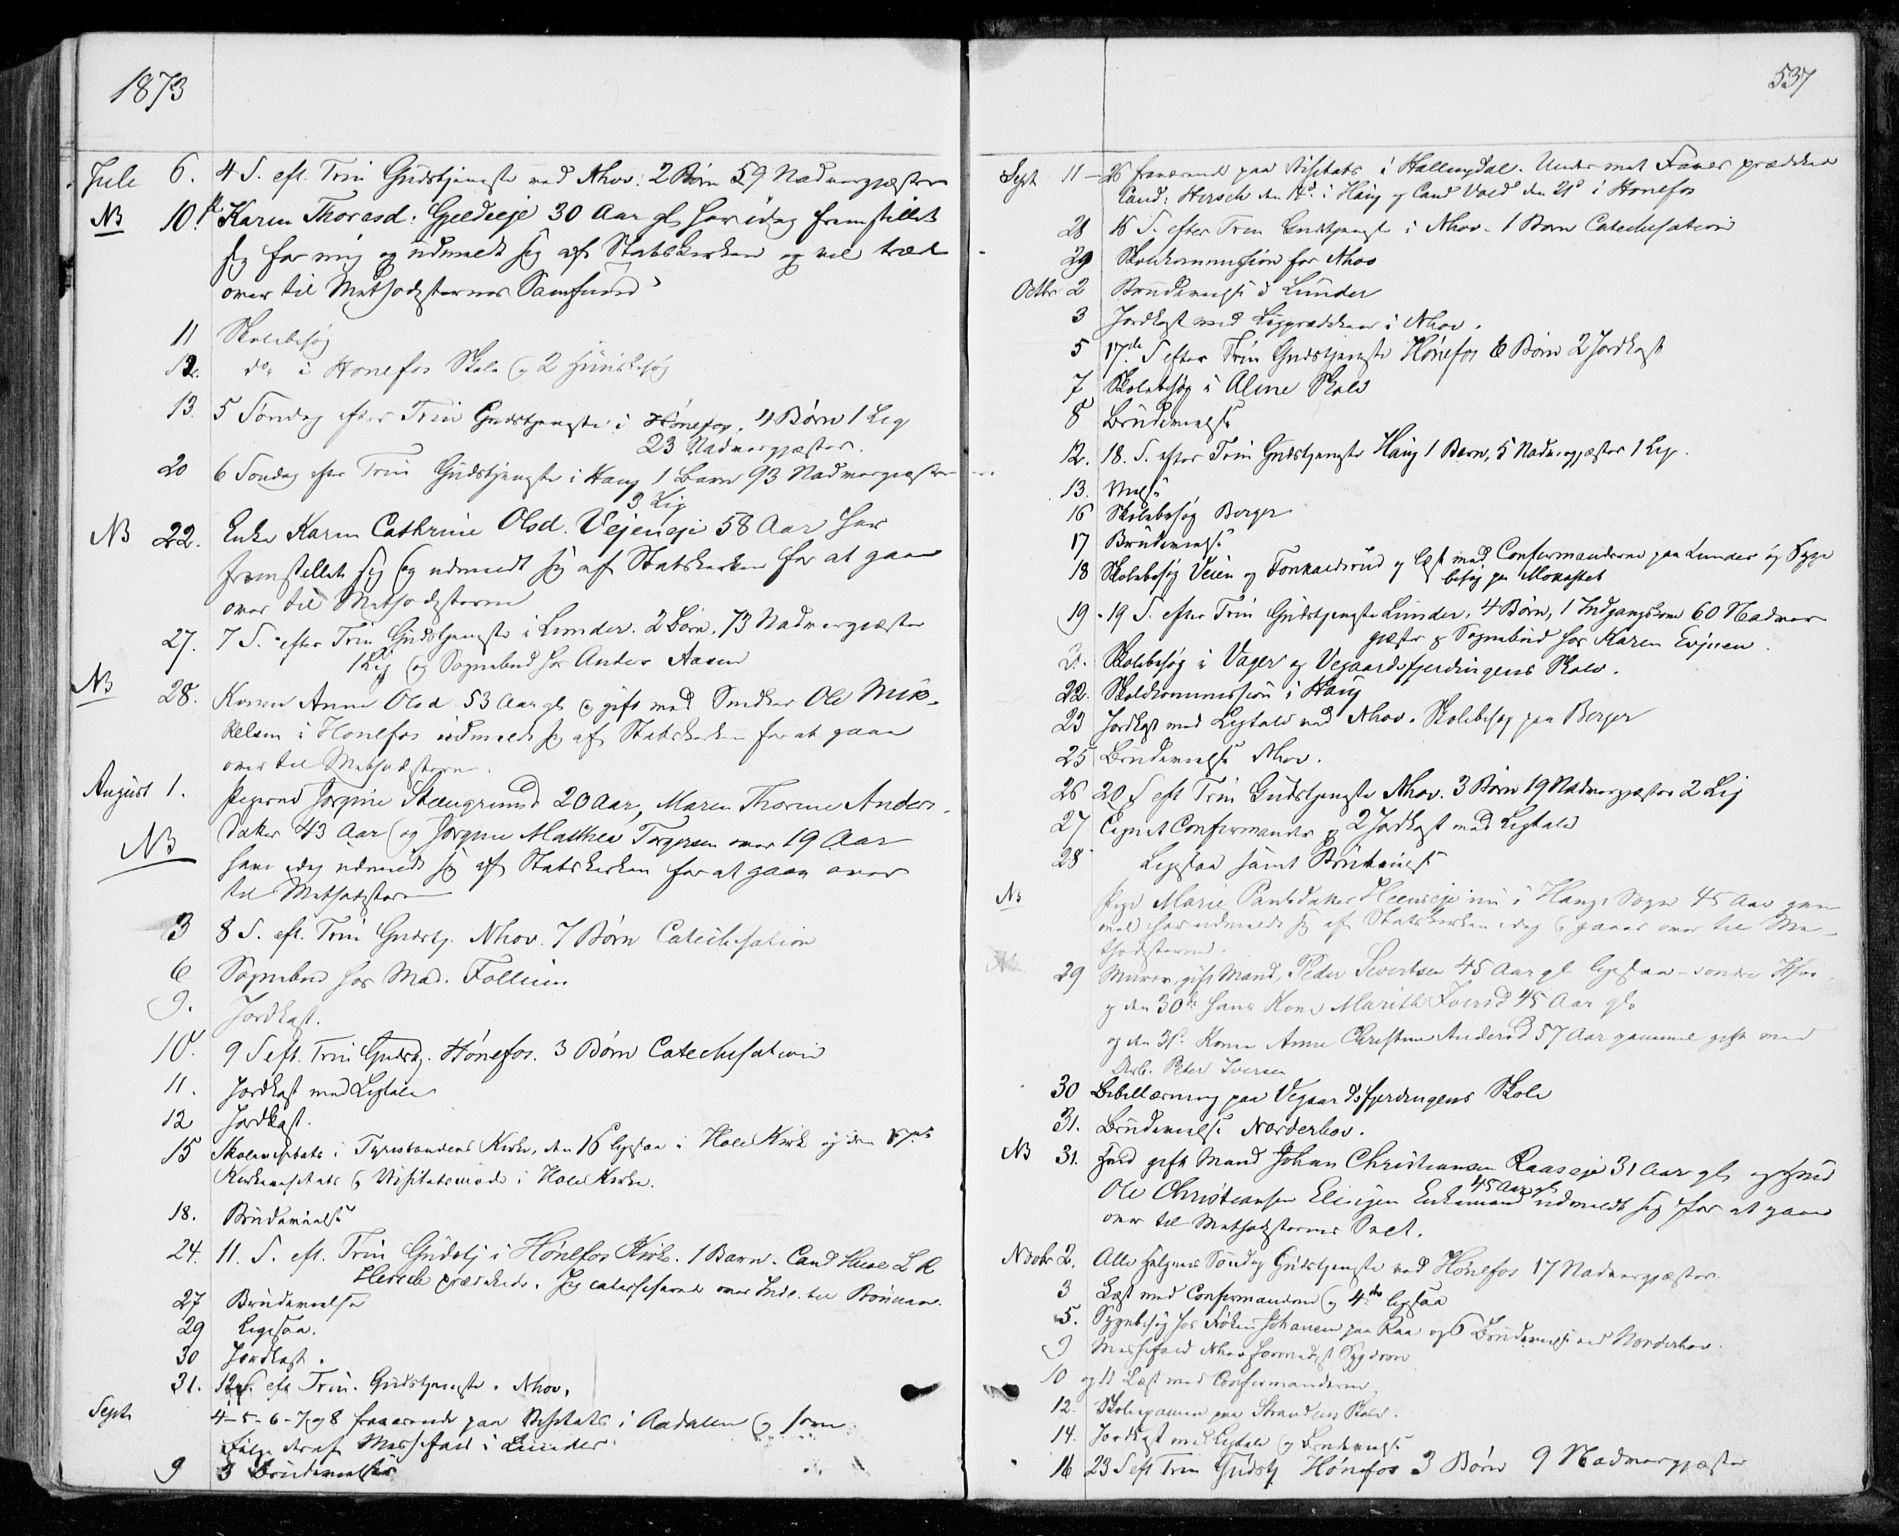 1873
Juli 6. 4 S. eft. Trin Gudstjeneste ved Nhov. 2 Børn 59 Nadvergjæster
NB 10. Karen Thoresd. Gjeldeeje 30 Aar gl har idag fremstillet
sig for mig og udmeldt sig af Statskirken og vil træde
over til Methodisternes Samfund
11 Skolebesøg
12. do i Honefos Skole og 2 Huusbesøg
13. 5 Søndag efter Trin Gudstjeneste i Hönefos. 4 Børn 1 Lig
23 Nadvergjæster.
20 6 Søndag efter Trin Gudstjeneste i Haug 1 Barn 93 Nadvergjæster
3 Lig
NB 22. Enke Karen Cathrine Olsd. Vejeneje 58 Aar har
fremstillet sig og udmeldt sig af Statskirken for at gaae
over til Methodisterne
27. 7 S. efter Trin Gudstjeneste i Lunder. 2 Børn. 73 Nadvergjæster
1 Lig og Sognebud hos Anders Aasen
NB 28. Konen Anne Olsd 53 Aar gl og gift med Snedker Ole Mik-
kelsen i Honefos udmeldt sig af Statskirken for at gaae
over til Methodisterne.
August 1. Pigerne Jorgine Steengrund 20 Aar, Maren Thorine Anders-
NB datter 43 Aar og Jorgine Matthea Torgersen over 19 Aar
have idag udmeldt sig af Statskirken for at gaae over
til Methodisterne
3 8 S. eft. Trin Gudstj. Nhov. 7 Børn Catechisation
6 Sognebud hos Mad. Follum
9. Jordkast.
10. 9 S eft. Trin Gudstj. Hönefos. 3 Børn Catechisation
11. Jordkast med Ligtale
12 Jordkast.
15 Skolevisitats i Tyristrandens Kirke, den 16 ligesaa i Hole Kirke og den 17de
Kirkevisitats og Visitatsmøde i Hole Kirke.
18. Brudevielse
24. 11. S. eft. Trin Gudstj i Hönefos Kirke. 1 Barn. Cand theol L R
Hersch prædikede. Jeg catechiserede over Indl. til Bønnen.
27 Brudevielse
29 Ligesaa.
30 Jordkast.
31. 12 S. eft Trin. Gudstjeneste. Nhov.
Septr 4-5-6-7 og 8 fraværende paa Visitats i Aadalen og som
Følge deraf Messefald i Lunder.
9 3 Brudevielser
537
Sept 11-26 fraværende paa Visitats i Hallingdal. Under mit Favær prædiked
Cand: Hersch den i Haug og Cand Vold den 21d i Honefos
28 16 S. efter Trin Gudstjeneste i Nhov. 1 Barn Catechisation
29 Skolekommission for Nhov
Octbr 2 Brudevielse i Lunder
3 Jordkast med Ligprædiken i Nhov.
5 17de S efter Trin Gudstjeneste Hönefos 6 Børn 2 Jordkast
7 Skolebesøg i Alme Skole
8 Brudevielse
12. 18. S. efter Trin Gudstjeneste Haug 1 Barn, 5 Nadvergjæster 1 Lig.
13. Vielse
16 Skolebesøg Berger
17 Brudevielse
18 Skolebesøg Veien og Tonkaldsrud og læst med Confirmanderne paa Lunder og Syge
besøg paa Moxastet
19. 19 S. efter Trin Gudstjeneste Lunder. 4 Børn, 1 Indgangskone 60 Nadver
gjæster & Sognebud hos Karen Evjuen.
2. Skolebesøg i Vager og Vegaardsfjerdingens Skole.
22. Skolekommission i Haug
23 Jordkast med Ligtale ved Nhov. Skolebesøg paa Berger
25 Brudevielse Nhov.
26 20 S eft Trin Gudstjeneste Nhov. 3 Børn 19 Nadvergjæster 2 Lig
27 Confirmander og 2 Jordkast med Ligtale
28 Ligesaa samt Brudevielse
NB Pige Marie Paulsdatter Heeneeje nu i Haugs Sogn 45 Aar gam
mel har udmeldt sig af Statskirken idag og gaaer over til Me-
thodisterne.
29 Murer, gift Mand, Peder Sivertsen 45 Aar gl ligesaa - søndre
og den 30te hans Kone Marithe Iversd 45 Aar gl
og den 31. Konen Anne Christine Andersd 57 Aar gammel gift med
Arb. Peter Iversen
30 Bibellæsning paa Vegaardsfjerdingens Skole
31. Brudevielse Norderhov.
NB 31. Hmd gift Mand Johan Christiansen Raaseje 31 Aar gl og Hmd
Ole Christiansen Elsrjen Enkemand 45 Aar gl udmeldt sig for at gaae
over til Methodisternes Sect.
Novbr 2. Alle Helgens Søndag Gudstjeneste ved Hönefos 17 Nadvergjæster.
3 Læst med Confirmanderne og 4de ligesaa
5. Sygebesøg hos Johansen paa Raa og 6 Brudevielse ved Norderhov.
9 Messefald Nhov formedelst Sygdom
10 og 11 Læst med Confirmanderne
12. Skoleexamen paa Strandens Skole.
14. Jordkast med Ligtale og Brudevielse
16 23 S eft Trin Gudstj Hönefos 3 Børn 9 Nadvergjæster